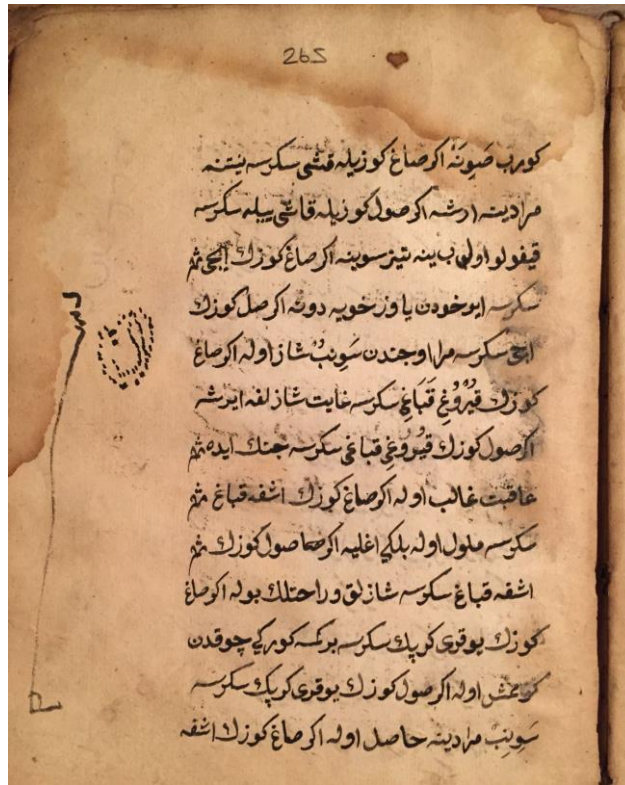 265
كورب صَوِنَه اكر صاغ كوزيله قشى سكرسه بتنه
مرادينه ارشه اكر صول كوزيله قاشى بيله سكرسه
قيغولو اولى ب ينه تيز سوينه اكر صاغ كوزك ايجى
سكرسه ايو خودن ياوز خويه دونه اكر صل كوزك
ايجى سكرسه مرا اوجندن سَوِنبُ شاز اوله اكر صاغ
كوزك قيُرُوغِ قَبَاغِ سكرسه غايت شازلغه ايرشه
اكر صول كوزك قيُروغِى قباغى سكرسه جنك ايده
عاقبت غالب اوله اكر صاغ كوزك اشغه قباغ
سكرسه ملول اوله بلكى اغليه اكر صول كوزك
اشغه قباغ سكرسه شازلق و راحتلك بوله اكر صاغ
كوزك يوقرى كرپك سكرسه بركسه كوركى چوقدن
كورممش اوله اكر صول كوزك يوقرى كرپك سكرسه
سَوِنِب مرادينه حاصل اوله اكر صاغ كوزك اشغه